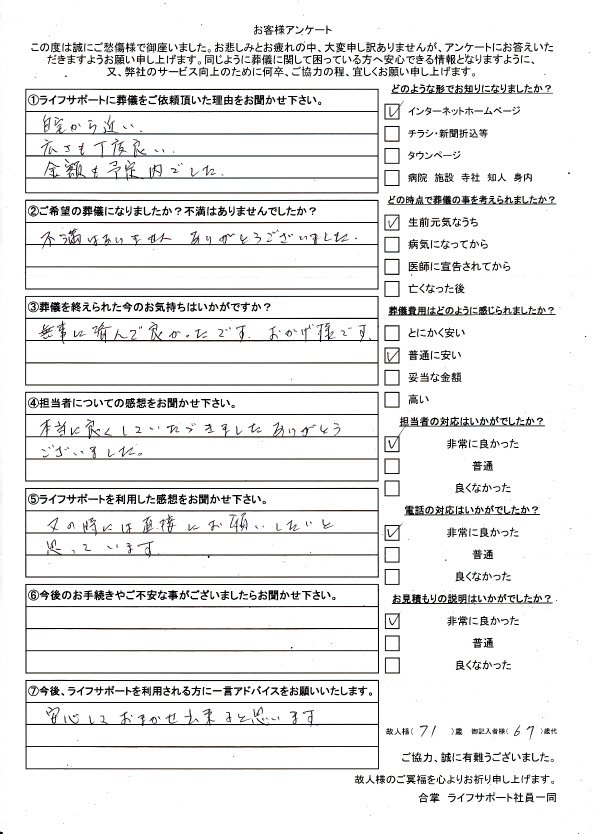 お客様アンケート
この度は誠にご愁傷様で御座いました。お悲しみとお疲れの中、大変申し訳ありませんが、アンケートにお答えいた
だきますようお願い申し上げます。同じように葬儀に関して困っている方へ安心できる情報となりますように、
又、弊社のサービス向上のために何卒、ご協力の程、宜しくお願い申し上げます。
①ライフサポートに葬儀をご依頼頂いた理由をお聞かせ下さい。
自宅から近い、
広さも丁度良い、
金額も予定内でした。
②ご希望の葬儀になりましたか？不満はありませんでしたか？
不満はありません ありがとうございました。
③葬儀を終えられた今のお気持ちはいかがですか？
無事に済んで良かったです。おかげ様です。
④担当者についての感想をお聞かせ下さい。
本当に良くしていただきましたありがとう
ございました。
⑤ライフサポートを利用した感想をお聞かせ下さい。
又の時には直接にお願いしたいと
思っています
⑥今後のお手続きやご不安な事がございましたらお聞かせ下さい。
⑦今後、ライフサポートを利用される方に一言アドバイスをお願いいたします。
安心しておまかせ出来ると思います
どのような形でお知りになりましたか？
インターネットホームページ
チラシ・新聞折込等
タウンページ
病院 施設 寺社 知人 身内
どの時点で葬儀の事を考えられましたか？
生前元気なうち
病気になってから
医師に宣告されてから
亡くなった後
葬儀費用はどのように感じられましたか？
とにかく安い
普通に安い
妥当な金額
高い
担当者の対応はいかがでしたか？
非常に良かった
普通
良くなかった
電話の対応はいかがでしたか？
非常に良かった
普通
良くなかった
お見積もりの説明はいかがでしたか？
非常に良かった
普通
良くなかった
故人様（ 71 ）歳 御記入者様（ 67 ）歳代
ご協力、誠に有難うございました。
故人様のご冥福を心よりお祈り申し上げます。
合掌 ライフサポート社員一同